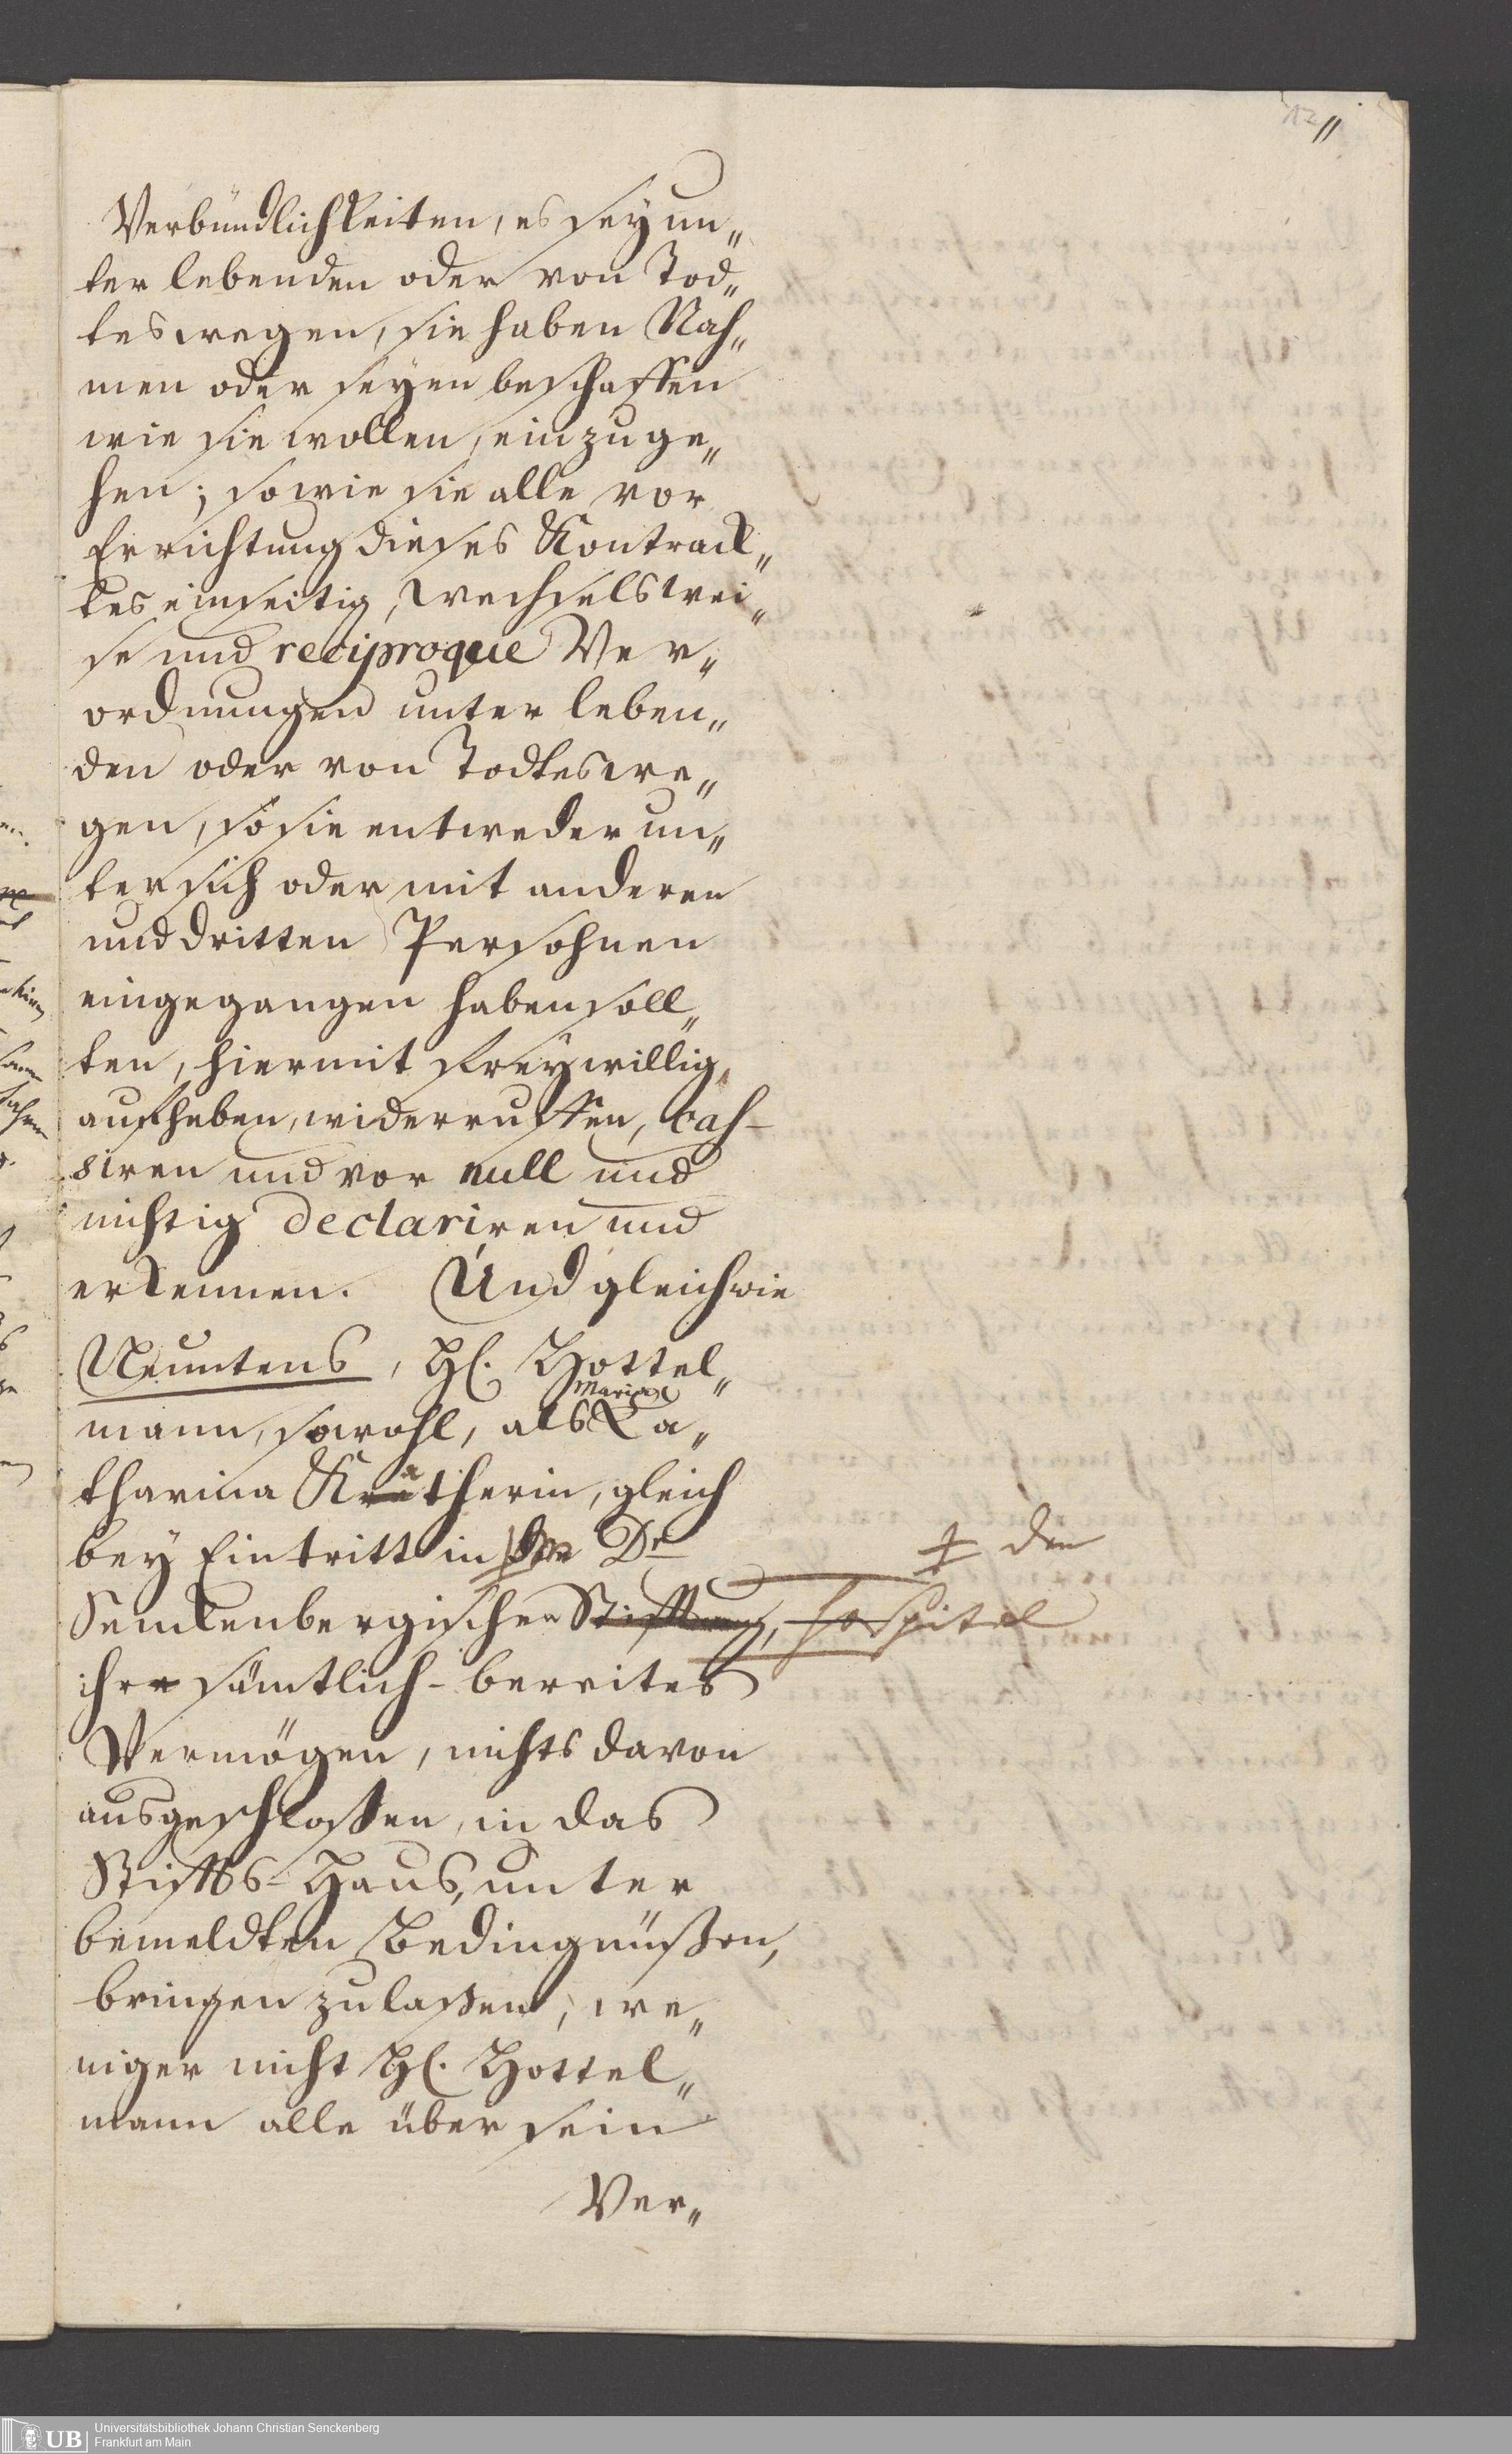 12 11
Verbündlichkeiten, es sey un„
ter lebenden oder von Tod„
teswegen, sie haben Nah„
men oder seyen beschaffen
wie sie wollen, einzuge„
hen; sowie sie alle vor
Errichtung dieses Kontrack„
tes einseitig, wechselswei„
se und reciproque Ver„
ordnungen unter leben„
den oder von Todteswe„
gen, so sie entweder un„
ter sich oder mit anderen
und dritten Persohnen
eingegangen haben soll„
ten, hiermit freywillig,
aufheben, widerruffen, cas-
siren und vor null und
nichtig declariren und
erkennen. Und gleichwie
Neuntens, H. Hottel„
Maria
mann, sowohl, als Ca„
tharina Krätherin, gleich
bey Eintritt in Dr.
‡ den
Senckenbergischen Stifftung, Hospital
ihr sämtlich-bereites
Vermögen, nichts davon
ausgeschlossen, in das
Stiffts-Haus, unter
bemeldten Bedingnüssen,
bringen zu lassen, we„
niger nicht H. Hottel„
mann alle über sein
Ver„
UB Universitätsbibliothek Johann Christian Senckenberg
Frankfurt am Main